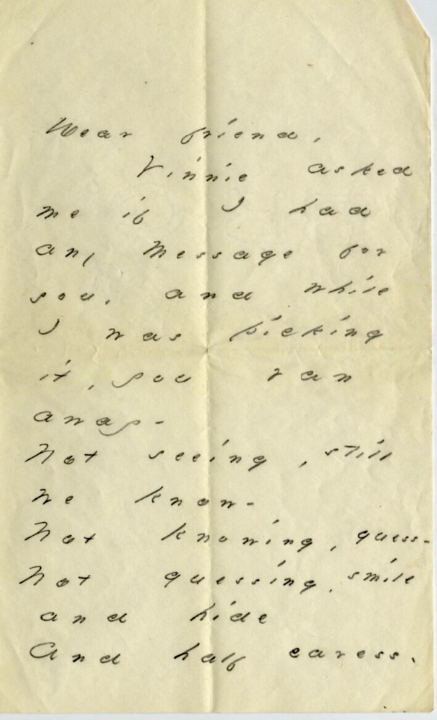 Dear friend,
Vinnie asked
me if I had
any message for
you, and while
I was picking
it, you ran
away-
Not seeing, still
we know-
Not knowing, guess-
Not guessing, smile
and hide
And half caress.